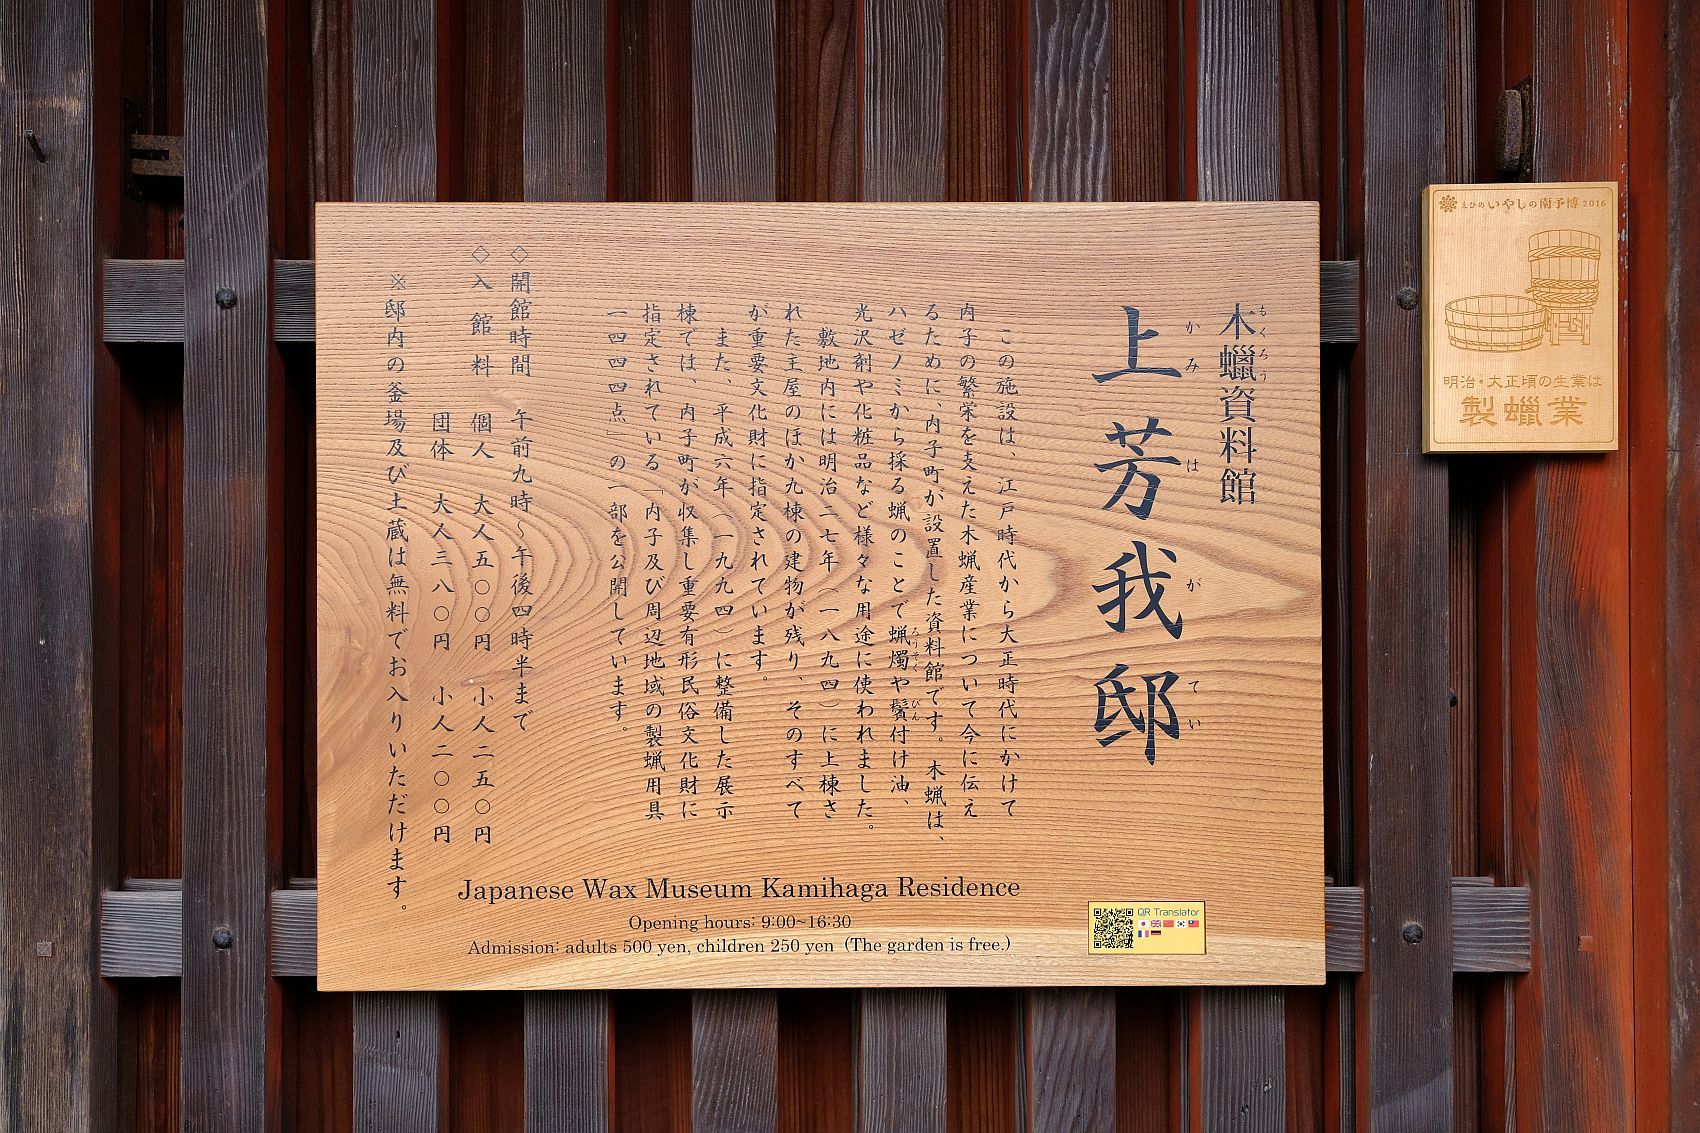 木蠟資料館
もくろう
上芳我邸
かみはがてい
この施設は、江戸時代から大正時代にかけて
内子の繁栄を支えた木蝋産業について今に伝え
るために、内子町が設置した資料館です。木蝋は、
ハゼノミから採る蝋のことで蝋燭や鬢付け油、
ろうそく びん
光沢剤や化粧品など様々な用途に使われました。
敷地内には明治二七年（一八九四）に上棟さ
れた主屋のほか九棟の建物が残り、そのすべて
が重要文化財に指定されています。
また、平成六年（一九九四）に整備した展示
棟では、内子町が収集し重要有形民俗文化財に
指定されている「内子及び周辺地域の製蝋用具
一四四四点」の一部を公開しています。
◇開館時間 午前九時～午後四時半まで
◇入館料 個人 大人五〇〇円 小人二五〇円
団体 大人三八〇円 小人二〇〇円
※邸内の釜場及び土蔵は無料でお入りいただけます。
Japanese Wax Museum Kamihaga Residence
Opening hours: 9:00~16:30
Admission: adults 500 yen, children 250 yen (The garden is free.)
QR Translator
えひめいやしの南予博2016
明治・大正頃の生業は
製蠟業